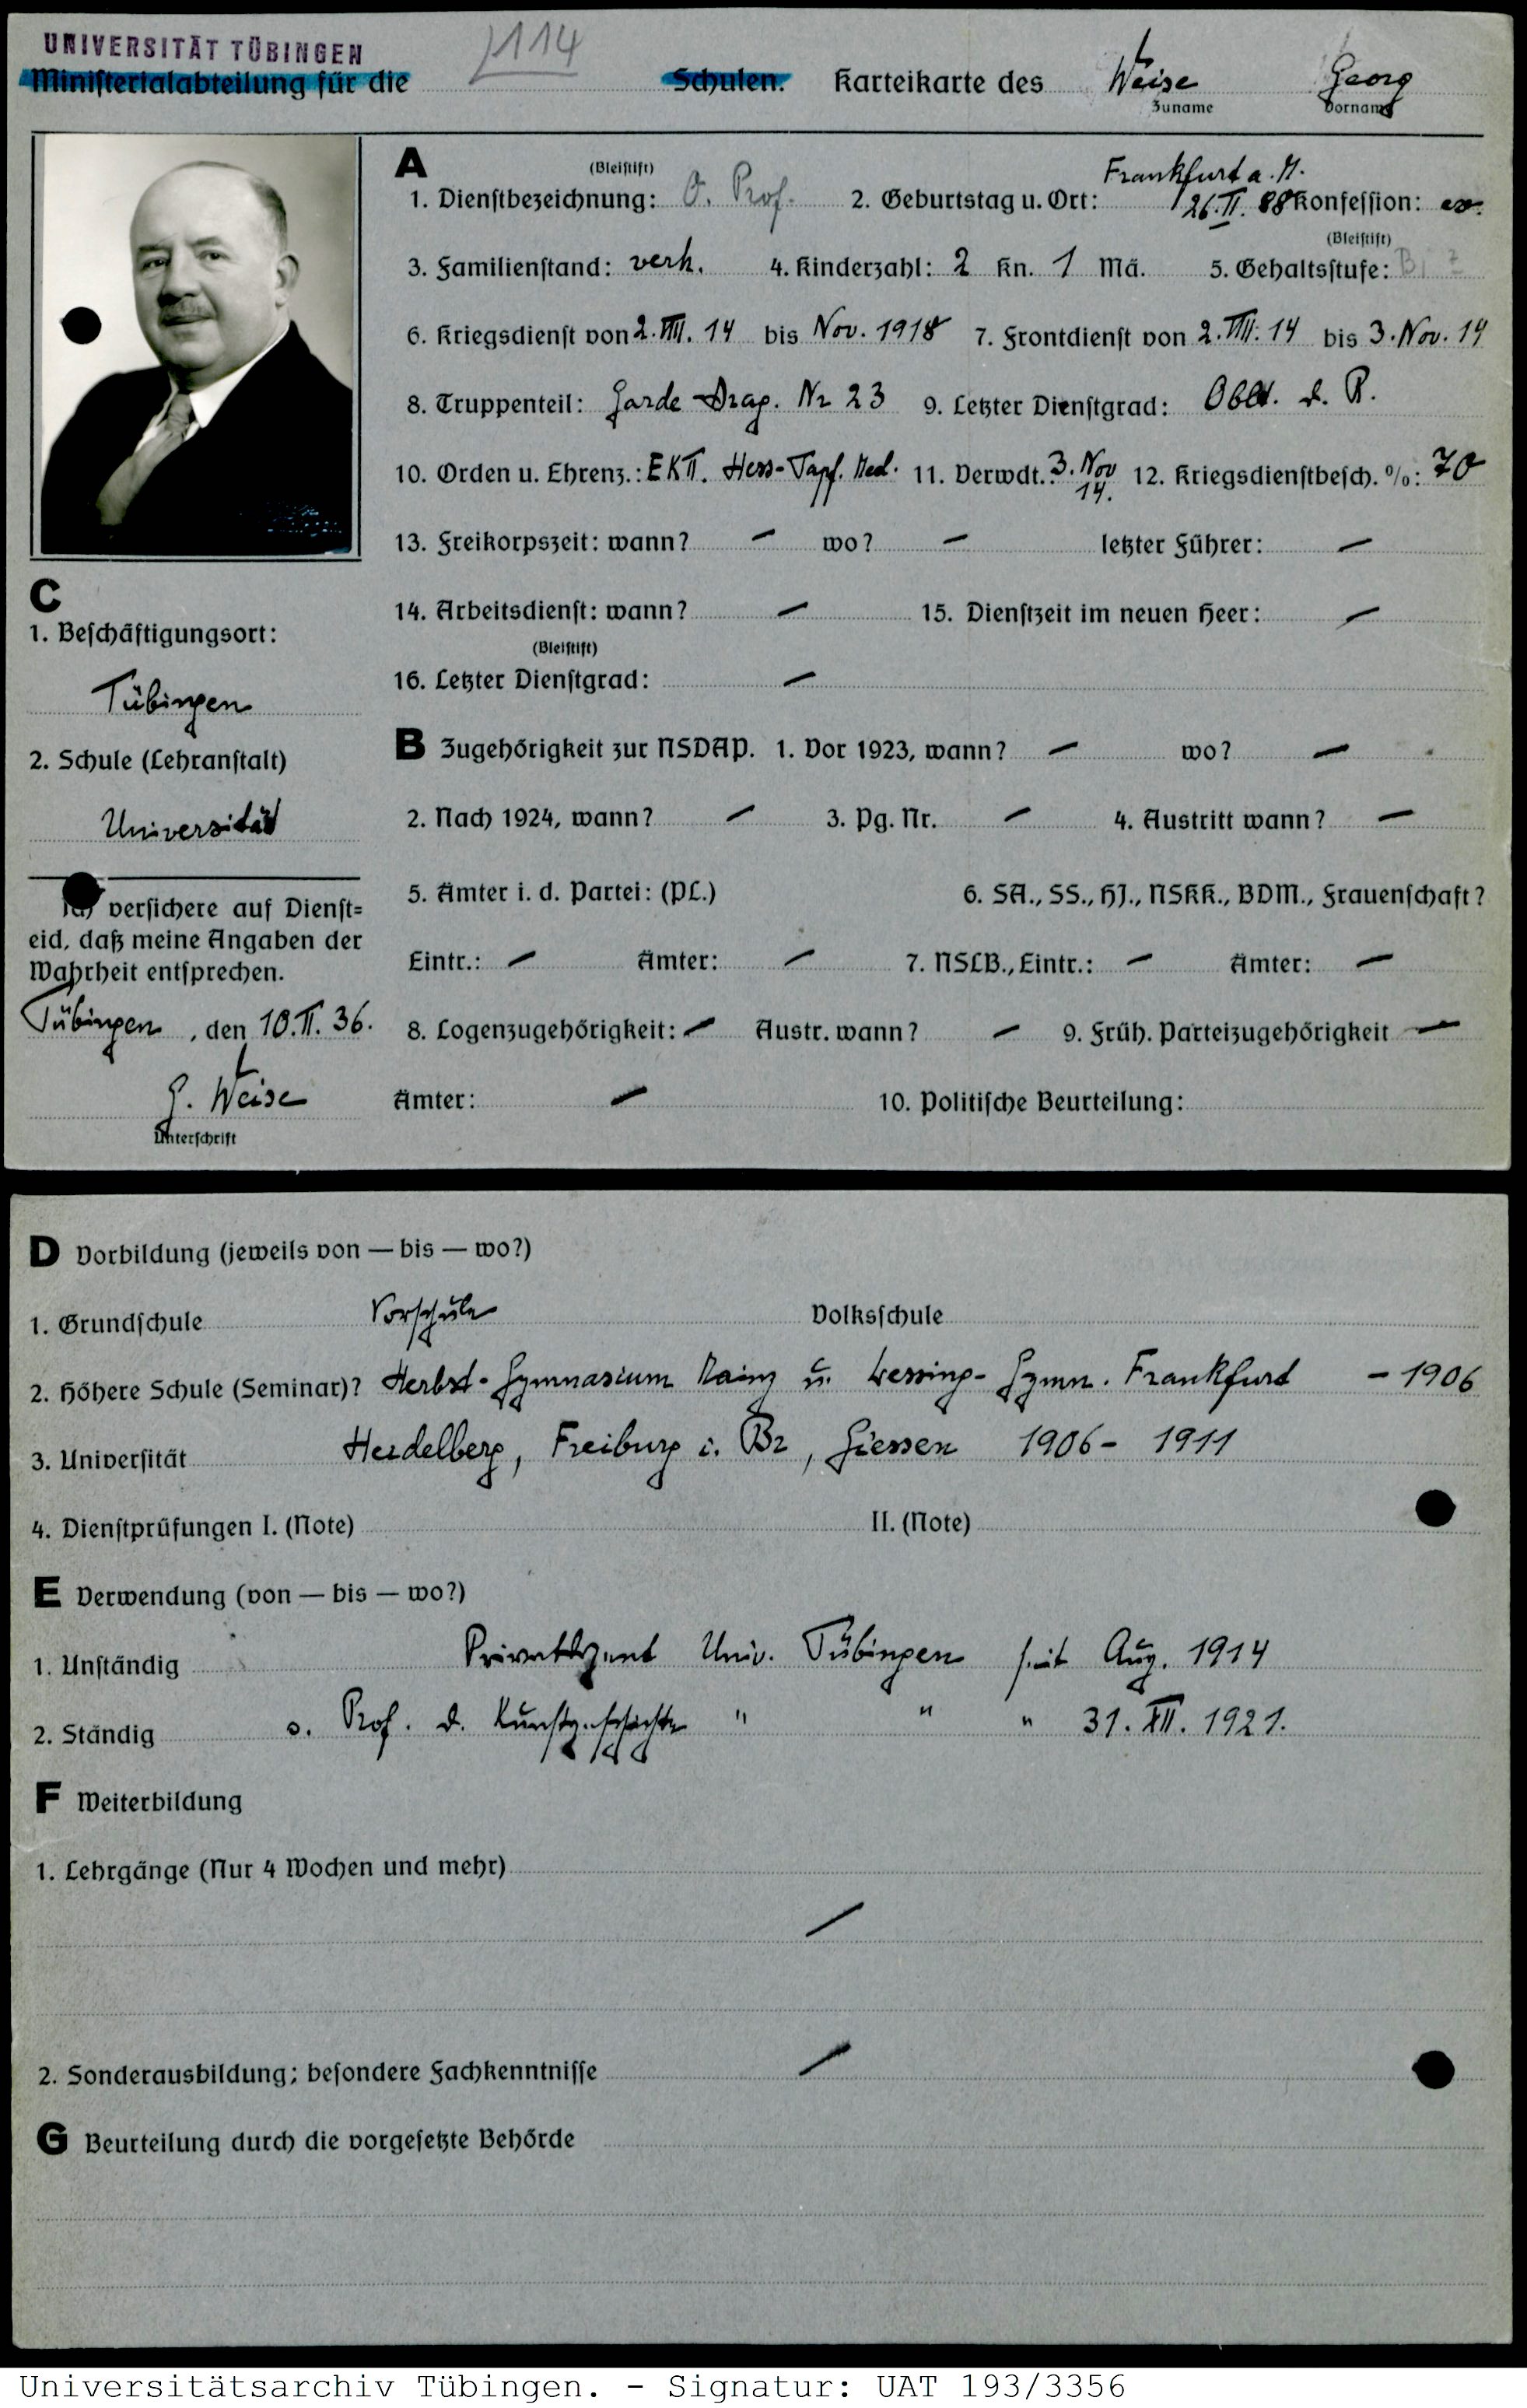 UNIVERSITÄT TÜBINGEN
114
Ministerialabteilung für die Schulen. Karteikarte des Weise Georg
Zuname Vorname
A
(Bleistift)
Frankfurt a. M.
1. Dienstbezeichnung: O. Prof. 2. Geburtstag u. Ort: 26. II. 88 Konfession: ev.
(Bleistift)
3. Familienstand: verh. 4. Kinderzahl: 2 Kn. 1 Mä. 5. Gehaltsstufe:
6. Kriegsdienst von 2. VIII. 14 bis Nov. 1918 7. Frontdienst von 2. VIII. 14 bis 3. Nov. 14
8. Truppenteil: Garde Drag. Nr 23 9. Letzter Dienstgrad: Oblt. d. R.
10. Orden u. Ehrenz.: EK II. Hess-Tapf. Med. 11. Verwdt.: 3. Nov 14. 12. Kriegsdienstbesch. %: 70
13. Freikorpszeit: wann? – wo? – letzter Führer: –
14. Arbeitsdienst: wann? – 15. Dienstzeit im neuen Heer: –
(Bleistift)
16. Letzter Dienstgrad: –
B Zugehörigkeit zur NSDAP. 1. Vor 1923, wann? – wo? –
2. Nach 1924, wann? – 3. Pg. Nr. – 4. Austritt wann? –
5. Ämter i. d. Partei: (PL.) 6. SA., SS., HJ., NSKK., BDM., Frauenschaft?
Eintr.: – Ämter: – 7. NSLB., Eintr.: – Ämter: –
8. Logenzugehörigkeit: – Austr. wann? – 9. Früh. Parteizugehörigkeit –
Ämter: – 10. Politische Beurteilung:
C
1. Beschäftigungsort:
Tübingen
2. Schule (Lehranstalt)
Universität
Ich versichere auf Dienst=
eid, daß meine Angaben der
Wahrheit entsprechen.
Tübingen, den 10. II. 36.
G. Weise
Unterschrift
D Vorbildung (jeweils von — bis — wo?)
1. Grundschule Vorschule Volksschule
2. Höhere Schule (Seminar)? Herbst-Gymnasium Mainz u. Lessing-Gymn. Frankfurt – 1906
3. Universität Heidelberg, Freiburg i. Br, Giessen 1906 – 1911
4. Dienstprüfungen I. (Note) II. (Note)
E Verwendung (von — bis — wo?)
1. Unständig Privatdozent Univ. Tübingen seit Aug. 1914
2. Ständig o. Prof. d. Kunstgeschichte " " " 31. XII. 1921.
F Weiterbildung
1. Lehrgänge (Nur 4 Wochen und mehr)
–
2. Sonderausbildung; besondere Fachkenntnisse –
G Beurteilung durch die vorgesetzte Behörde
Universitätsarchiv Tübingen. - Signatur: UAT 193/3356